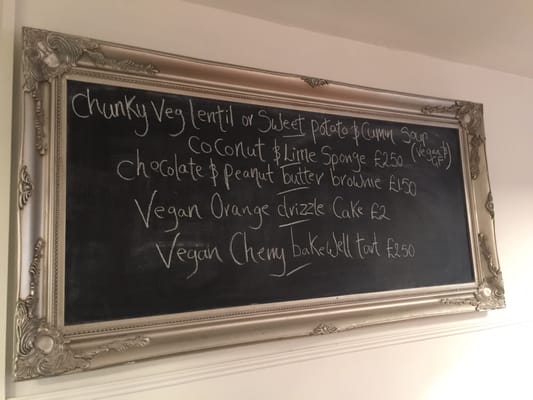 chunky Veg lentil or Sweet potato & Cumin Soup
(Vegan & GF)
Coconut & Lime Sponge £250
chocolate & peanut butter brownie £150
Vegan Orange drizzle Cake £2
Vegan Cherry bakewell tart £250